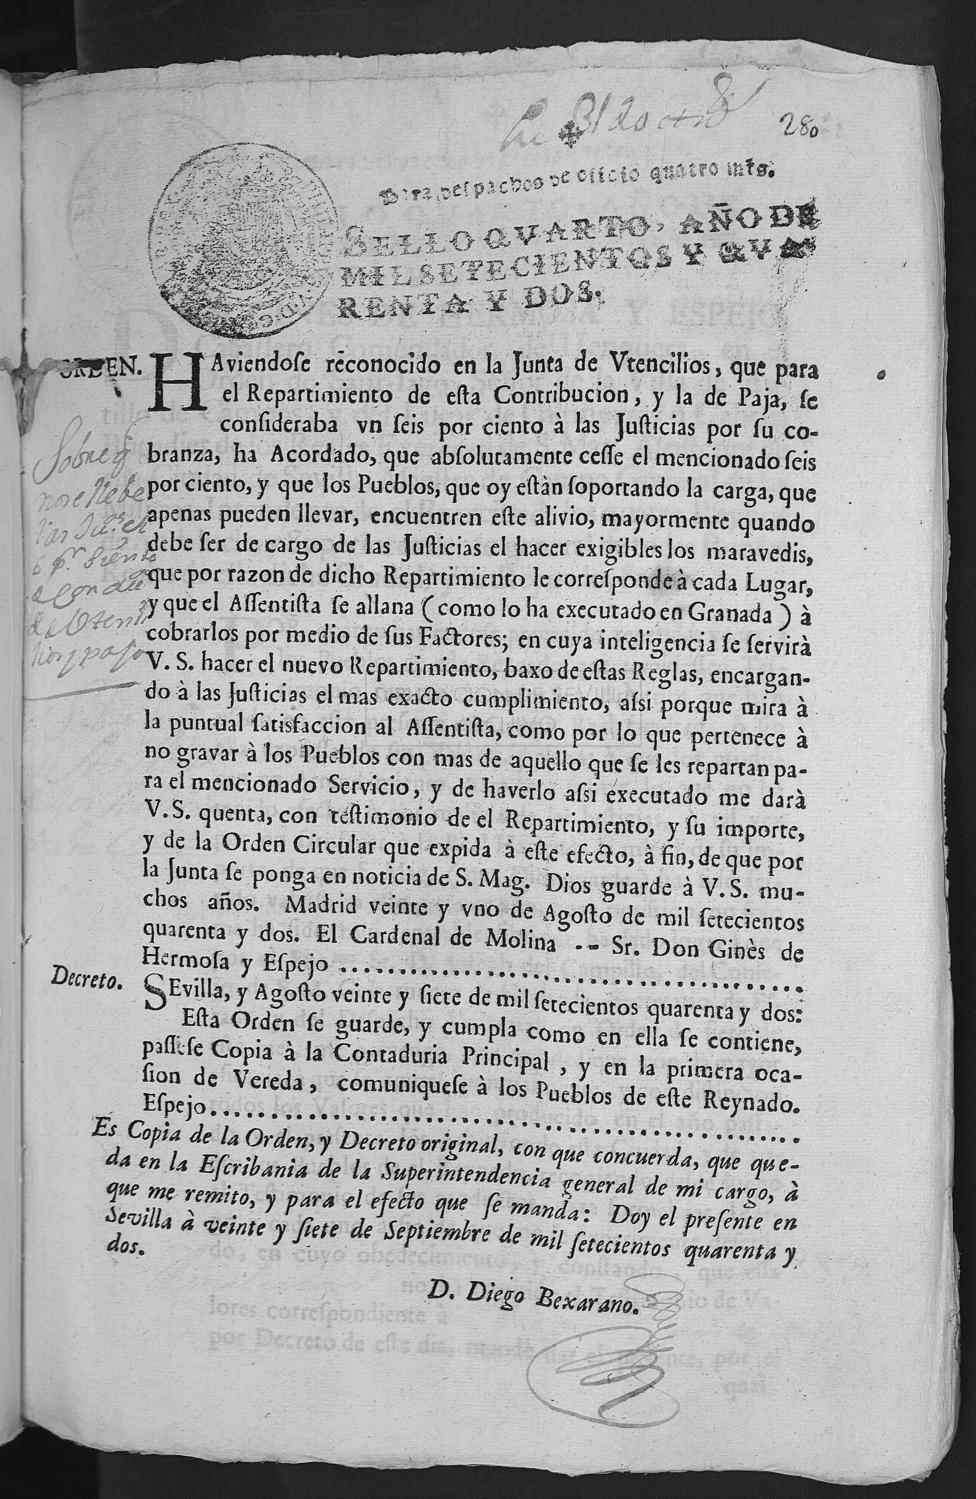 280
Para despachos de oficio quatro mrs.
SELLO QVARTO, AÑO DE
MIL SETECIENTOS Y QVA
RENTA Y DOS.
ORDEN. HAviendose reconocido en la Junta de Vtencilios, que para
el Repartimiento de esta Contribucion, y la de Paja, se
consideraba vn seis por ciento à las Justicias por su co-
branza, ha Acordado, que absolutamente cesse el mencionado seis
por ciento, y que los Pueblos, que oy estàn soportando la carga, que
apenas pueden llevar, encuentren este alivio, mayormente quando
debe ser de cargo de las Justicias el hacer exigibles los maravedis,
que por razon de dicho Repartimiento le corresponde à cada Lugar,
y que el Assentista se allana (como lo ha executado en Granada) à
cobrarlos por medio de sus Factores; en cuya inteligencia se servirà
V. S. hacer el nuevo Repartimiento, baxo de estas Reglas, encargan-
do à las Justicias el mas exacto cumplimiento, assi porque mira à
la puntual satisfaccion al Assentista, como por lo que pertenece à
no gravar à los Pueblos con mas de aquello que se les repartan pa-
ra el mencionado Servicio, y de haverlo assi executado me darà
V. S. quenta, con testimonio de el Repartimiento, y su importe,
y de la Orden Circular que expida à este efecto, à fin, de que por
la Junta se ponga en noticia de S. Mag. Dios guarde à V. S. mu-
chos años. Madrid veinte y vno de Agosto de mil setecientos
quarenta y dos. El Cardenal de Molina -- Sr. Don Ginès de
Hermosa y Espejo ........................................
Decreto. SEvilla, y Agosto veinte y siete de mil setecientos quarenta y dos:
Esta Orden se guarde, y cumpla como en ella se contiene,
passese Copia à la Contaduria Principal, y en la primera oca-
sion de Vereda, comuniquese à los Pueblos de este Reynado.
Espejo..................................................
Es Copia de la Orden, y Decreto original, con que concuerda, que que-
da en la Escribania de la Superintendencia general de mi cargo, à
que me remito, y para el efecto que se manda: Doy el presente en
Sevilla à veinte y siete de Septiembre de mil setecientos quarenta y
dos.
D. Diego Bexarano.